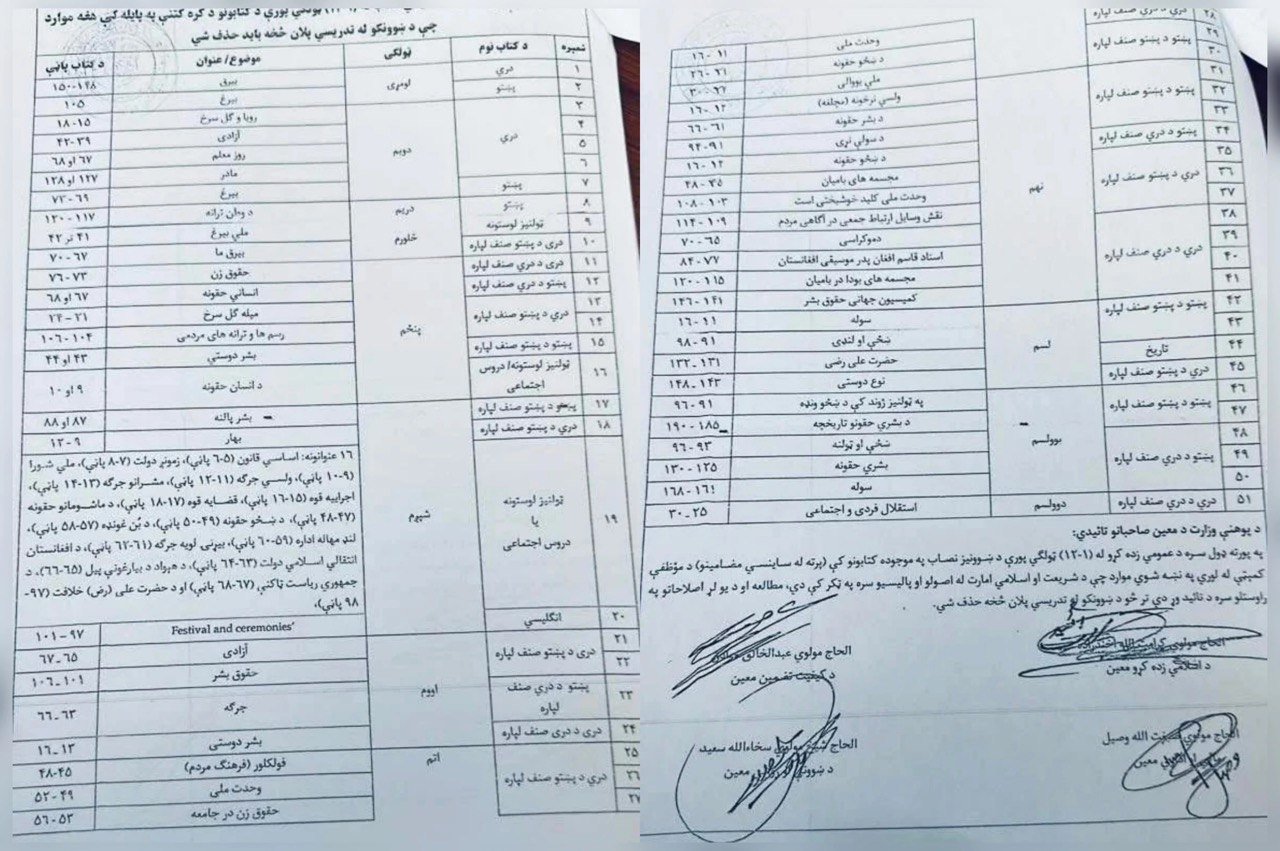 ټولګي پورې د کتابونو د کره کتنې په پایله کې هغه موارد
چې د ښوونکو له تدریسي پلان څخه باید حذف شي
نمبره د کتاب نوم ټولګی موضوع/عنوان د کتاب پاڼې
۱ دري لومړی بیرق ۱۴۸-۱۵۰
۲ پښتو بیرغ ۱۰۵
۳ دري دویم رویا و گل سرخ ۱۵-۱۸
۴ آزادی ۳۹-۴۲
۵ روز معلم ۶۷ او ۶۸
۶ مادر ۱۲۷ او ۱۲۸
۷ پښتو بیرغ ۶۹-۷۲
۸ پښتو دریم د وطن ترانه ۱۱۷-۱۲۰
۹ ټولنیز لوستونه څلورم ملي بیرغ ۴۱ تر ۴۲
۱۰ دری د پښتو صنف لپاره بیرق ما ۶۷-۷۰
۱۱ دری د دري صنف لپاره پنځم حقوق زن ۷۳-۷۶
۱۲ پښتو د دري صنف لپاره انساني حقونه ۶۷ او ۶۸
۱۳ دري د پښتو صنف لپاره میله گل سرخ ۲۱-۲۴
۱۴ رسم ها و ترانه های مردمی ۱۰۴-۱۰۶
۱۵ پښتو د پښتو صنف لپاره بشر دوستي ۴۳ او ۴۴
۱۶ ټولنیز لوستونه/ دروس اجتماعی د انسان حقونه ۹ او ۱۰
۱۷ پښتو د پښتو صنف لپاره شپږم بشر پالنه ۸۷ او ۸۸
۱۸ دري د پښتو صنف لپاره بهار ۹-۱۲
۱۹ ټولنیز لوستونه یا دروس اجتماعی
۱۶ عنوانونه: اساسي قانون (۵-۶ پاڼې)، زمونږ دولت (۷-۸ پاڼې)، ملي شورا
(۹-۱۰ پاڼې)، ولسي جرګه (۱۱-۱۲ پاڼې)، مشرانو جرګه (۱۳-۱۴ پاڼې)،
اجراییه قوه (۱۵-۱۶ پاڼې)، قضاییه قوه (۱۷-۱۸ پاڼې)، د ماشومانو حقونه
(۴۷-۴۸ پاڼې)، د ښځو حقونه (۴۹-۵۰ پاڼې)، د بُن غونډه (۵۷-۵۸ پاڼې)،
لنډ مهاله اداره (۵۹-۶۰ پاڼې)، بیړنۍ لویه جرګه (۶۱-۶۲ پاڼې)، د افغانستان
انتقالي اسلامي دولت (۶۳-۶۴ پاڼې)، د هېواد د بیارغونې پیل (۶۵-۶۶)، د
جمهوري ریاست ټاکنې (۶۷-۶۸ پاڼې) او د حضرت علی (رض) خلافت (۹۷-
۹۸ پاڼې)،
۲۰ انګلیسي Festival and ceremonies' ۹۷-۱۰۱
۲۱ دری د پښتو صنف لپاره اووم آزادی ۶۵-۶۷
۲۲ حقوق بشر ۱۰۱-۱۰۶
۲۳ پښتو د دري صنف لپاره جرګه ۶۳-۶۶
۲۴ دری د دری صنف لپاره بشر دوستی ۱۳-۱۶
۲۵ دري د پښتو صنف لپاره اتم فولکلور (فرهنگ مردم) ۴۵-۴۸
۲۶ وحدت ملی ۴۹-۵۲
۲۷ حقوق زن در جامعه ۵۳-۵۶
۲۸
۲۹ پښتو د پښتو صنف لپاره وحدت ملی ۱۱-۱۶
۳۰ د ښځو حقونه ۲۱-۲۶
۳۱ پښتو د پښتو صنف لپاره نهم ملي یووالی ۲۷-۳۰
۳۲ ولسي نرخونه (مچلغه) ۱۲-۱۶
۳۳ د بشر حقونه ۶۱-۶۶
۳۴ پښتو د دري صنف لپاره د سولې نړۍ ۹۱-۹۴
۳۵ دري د پښتو صنف لپاره د ښځو حقونه ۱۲-۱۶
۳۶ مجسمه های بامیان ۴۵-۴۸
۳۷ وحدت ملی کلید خوشبختی است ۱۰۳-۱۰۸
۳۸ دري د دري صنف لپاره نقش وسایل ارتباط جمعی در آگاهی مردم ۱۰۹-۱۱۴
۳۹ دموکراسی ۶۵-۷۰
۴۰ استاد قاسم افغان پدر موسیقی افغانستان ۷۷-۸۴
۴۱ مجسمه های بودا در بامیان ۱۱۵-۱۲۰
۴۲ پښتو د پښتو صنف لپاره کمیسیون جهانی حقوق بشر ۱۴۱-۱۴۶
۴۳ لسم سوله ۱۱-۱۶
۴۴ تاریخ ښځې او لنډۍ ۹۱-۹۸
۴۵ دري د پښتو صنف لپاره حضرت علی رضی ۱۳۱-۱۳۲
۴۶ پښتو د پښتو صنف لپاره نوع دوستی ۱۴۳-۱۴۸
۴۷ یوولسم په ټولنیز ژوند کې د ښځو ونډه ۹۱-۹۶
۴۸ پښتو د دري صنف لپاره د بشري حقونو تاریخچه ۱۸۵-۱۹۰
۴۹ ښځې او ټولنه ۹۳-۹۶
۵۰ بشري حقونه ۱۲۵-۱۳۰
سوله ۱۶۱-۱۶۸
۵۱ دري د دري صنف لپاره دوولسم استقلال فردی و اجتماعی ۲۵-۳۰
د پوهنې وزارت د معین صاحبانو تائیدي:
په پورته ډول سره د عمومي زده کړو له (۱-۱۲) ټولګي پورې د ښوونیز نصاب په موجوده کتابونو کې (پرته له ساینسي مضامینو) د مؤظفې
کمیټې له لوري په نښه شوي موارد چې د شریعت او اسلامي امارت له اصولو او پالیسیو سره په ټکر کې دي، مطالعه او د یو لړ اصلاحاتو په
راوستلو سره د تائید وړ دي تر څو د ښوونکو له تدریسي پلان څخه حذف شي.
الحاج مولوي کرامت الله اخندزاده
د اسلامي زده کړو معین
الحاج مولوي عبدالخالق
د کیفیت تضمین معین
الحاج مولوي الله وصیل
معین
الحاج شیخ مولوي سخاءالله سعید
د ښوونې معین